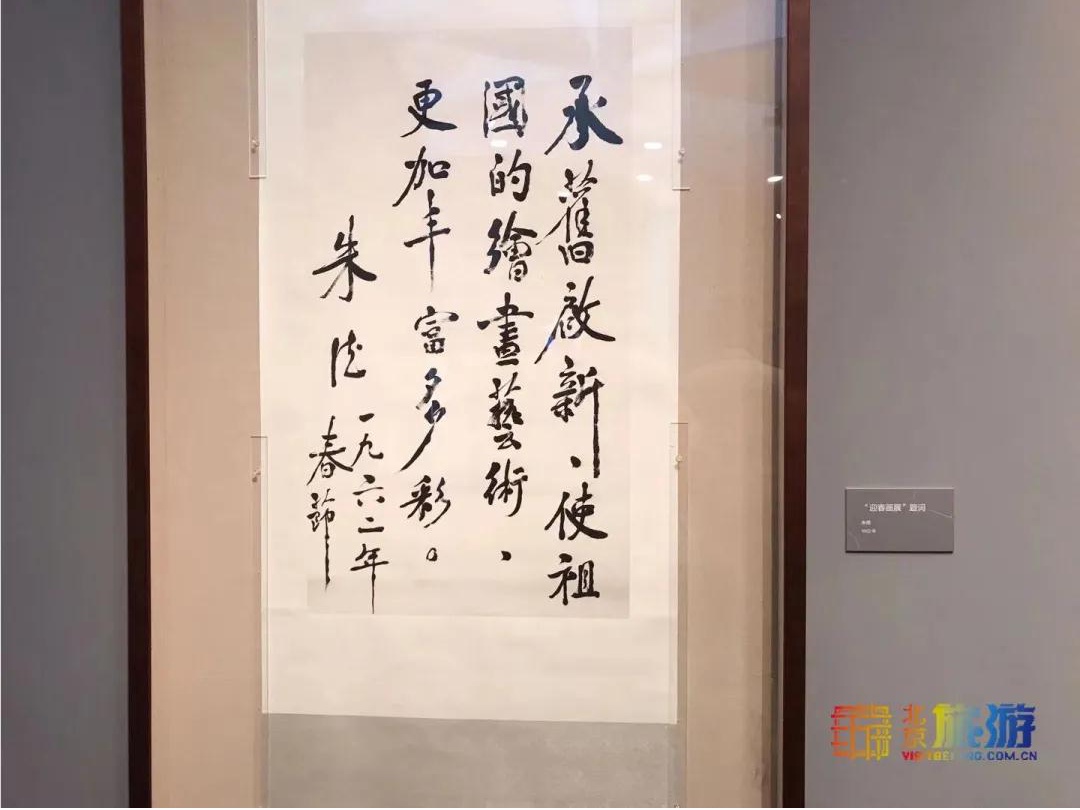 承舊啟新、使祖
國的繪畫藝術、
更加丰富多彩。
朱德
一九六二年
春節
“迎春画展”题词
朱德
1962 年
北京旅游
VISITBEIJING.COM.CN